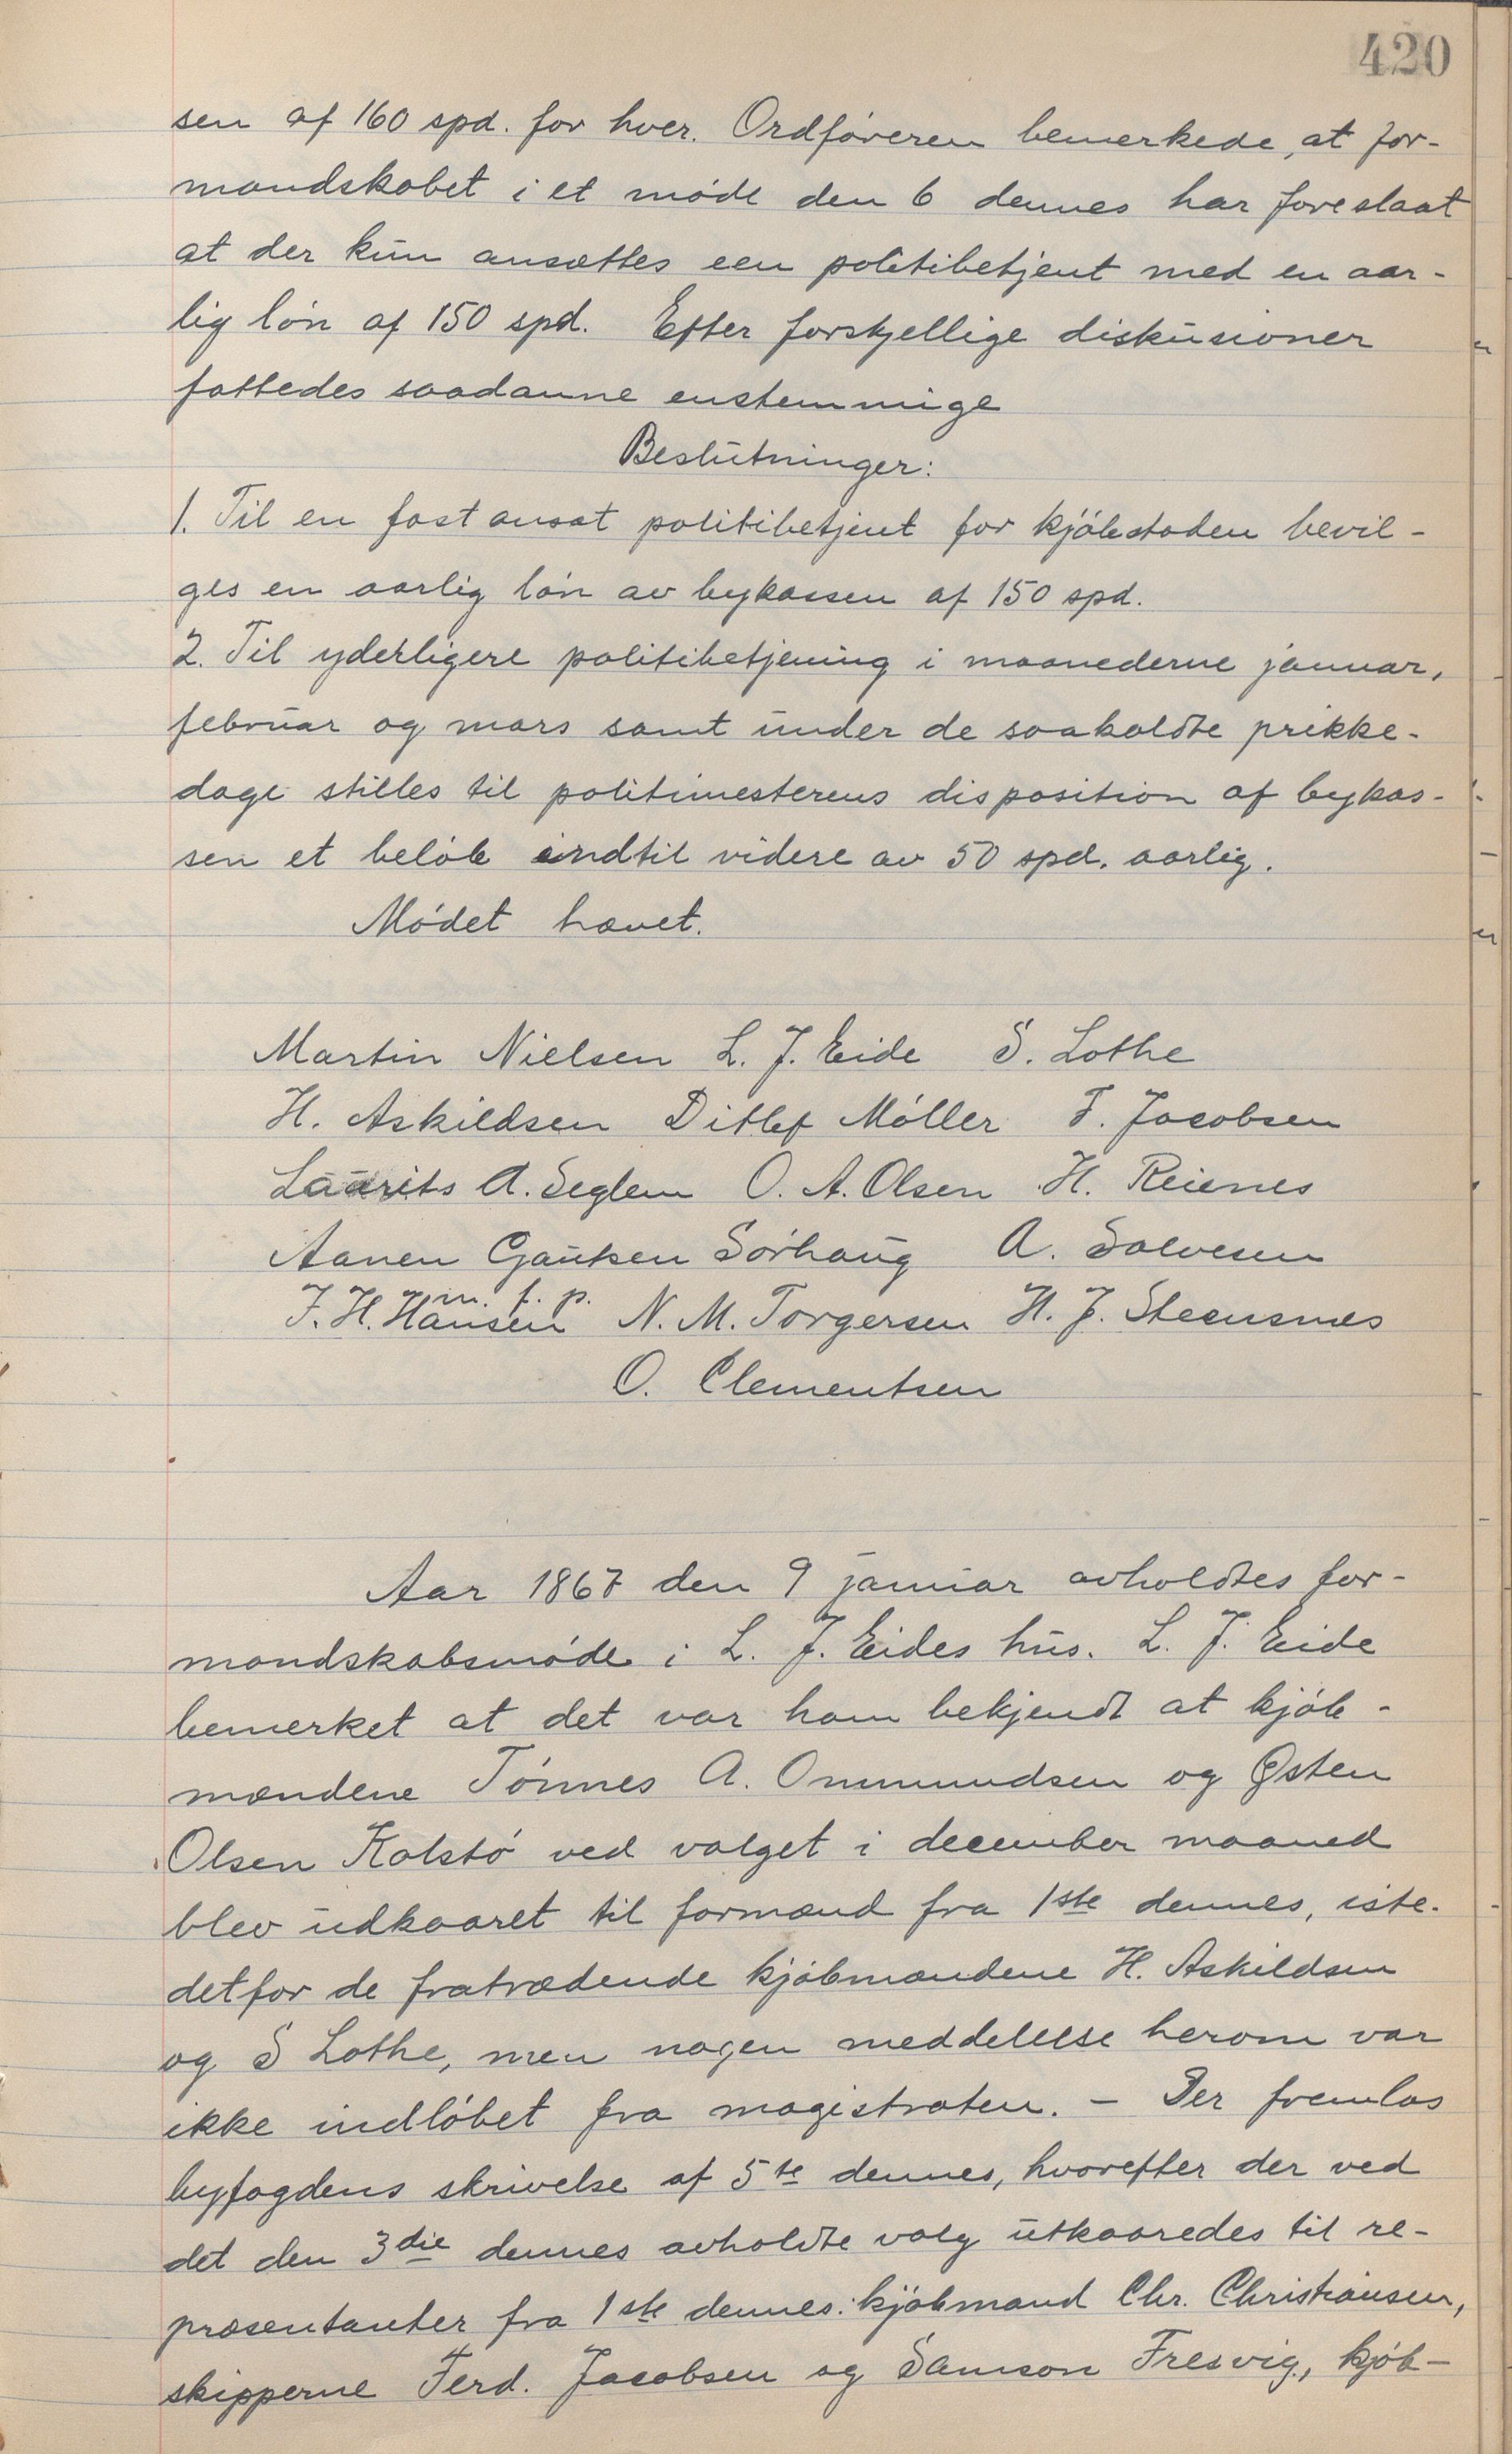 420
sen af 160 spd. for hver. Ordføreren bemerkede, at for-
mandskabet i et møde den 6 dennes har foreslaat
at der kun ansættes een politibetjent med en aar-
lig løn af 150 spd. Efter forskjellige diskusioner
fattedes saadanne enstemmige
Beslutninger:
1. Til en fast ansat politibetjent for kjøbstaden bevil-
ges en aarlig løn av bykassen af 150 spd.
2. Til yderligere politibetjening i maanederne januar,
februar og mars samt under de saakaldte prikke-
dage stilles til politimesterens disposition af bykas-
sen et beløb indtil videre av 50 spd. aarlig.
Mødet hævet.
Martin Nielsen L. J. Eide S. Lothe
H. Askildsen Ditlef Møller F. Jacobsen
Laurits A. Seglem O. A. Olsen H. Reienes
Aanen Gautsen Sørhaug A. Salvesen
m. f. p.
J. H. Hansen N. M. Torgersen H. J. Steensnæs
O. Clementsen
Aar 1867 den 9 januar avholdtes for-
mandskabsmøde i L. J. Eides hus. L. J. Eide
bemerket at det var ham bekjendt at kjøb-
mændene Tønnes A. Ommundsen og Østen
Olsen Kolstø ved valget i december maaned
blev udkaaret til formænd fra 1ste dennes, iste-
detfor de fratrædende kjøbmændene H. Askildsen
og S Lothe, men nogen meddelelse herom var
ikke indløbet fra magistraten. - Der fremlas
byfogdens skrivelse af 5te dennes, hvorefter der ved
det den 3die dennes avholdte valg utkaaredes til re-
præsentanter fra 1ste dennes: kjøbmand Chr. Christiansen,
skipperne Ferd. Jacobsen og Samson Fresvig, kjøb-